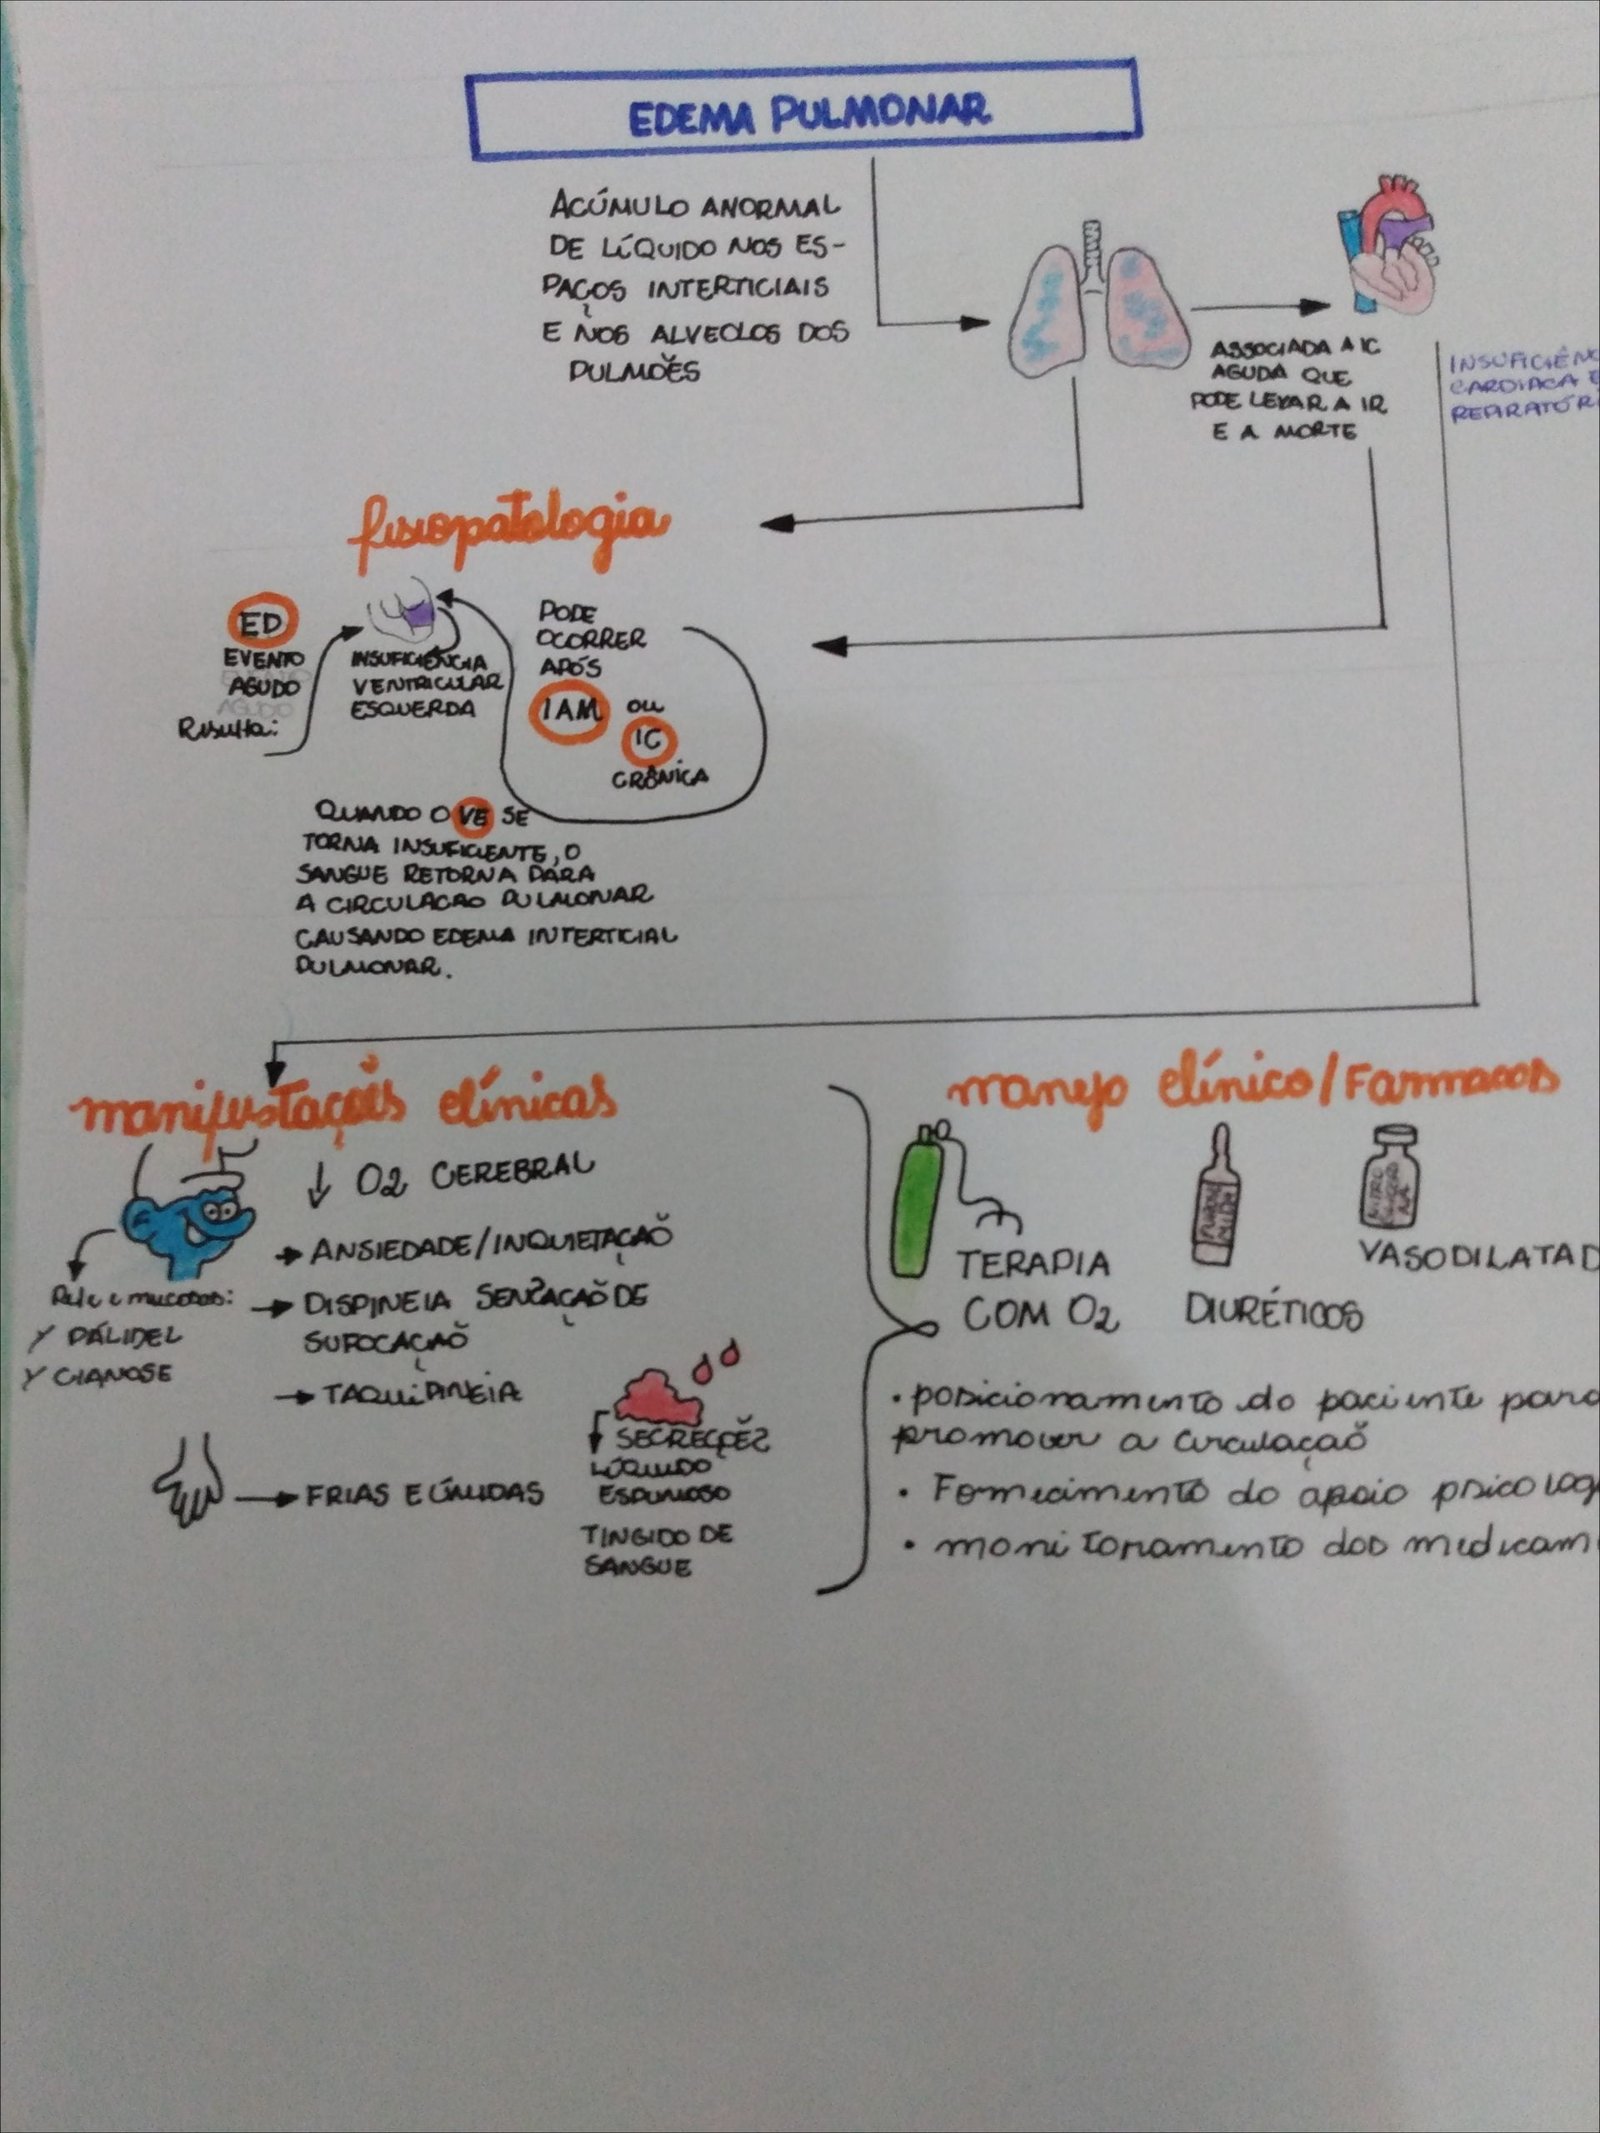 EDEMA PULMONAR
ACÚMULO ANORMAL
DE LÍQUIDO NOS ES-
PAÇOS INTERTICIAIS
E NOS ALVEOLOS DOS
PULMÕES
ASSOCIADA A IC
AGUDA QUE
PODE LEVAR A IR
E A MORTE
INSUFICIÊNC
CARDIACA E
REPIRATÓRI
fisiopatologia
ED
EVENTO
AGUDO
Resulta:
INSUFICIÊNCIA
VENTRICULAR
ESQUERDA
PODE
OCORRER
APÓS
IAM OU
IC
CRÔNICA
QUANDO O VE SE
TORNA INSUFICIENTE, O
SANGUE RETORNA PARA
A CIRCULACAO PULMONAR
CAUSANDO EDEMA INTERTICIAL
PULMONAR.
manifestações clínicas
↓ O2 CEREBRAL
→ ANSIEDADE/INQUIETAÇÃO
Pele e mucosas:
PÁLIDEL
CIANOSE
→ DISPINEIA SENSAÇÃO DE
SUFOCAÇÃO
→ TAQUIPINEIA
→ FRIAS E ÚMIDAS
SECREÇÕES
LÍQUIDO
ESPUMOSO
TINGIDO DE
SANGUE
manejo clínico/Farmacos
TERAPIA
COM O2
DIURÉTICOS
VASODILATAD
• posicionamento do paciente para
promover a circulação
• Fornecimento do apoio psicolog
• monitoramento dos medicam